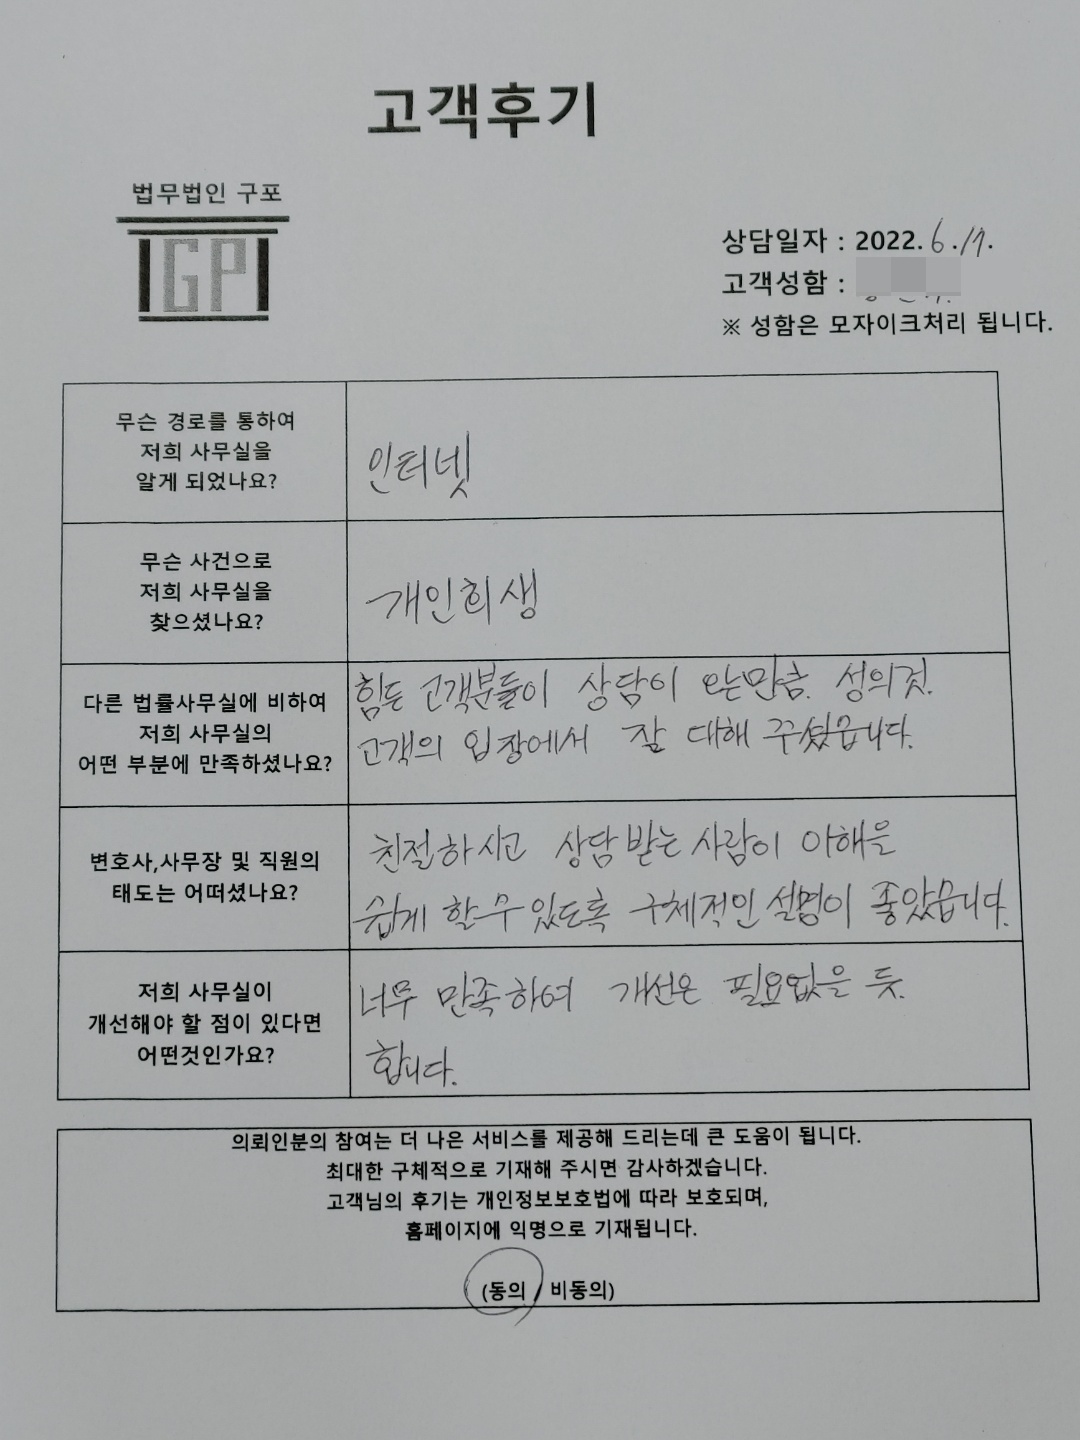 고객후기
법무법인 구포
GP
상담일자 : 2022. 6. 17.
고객성함 :
※ 성함은 모자이크처리 됩니다.
무슨 경로를 통하여
저희 사무실을
알게 되었나요?
인터넷
무슨 사건으로
저희 사무실을
찾으셨나요?
개인회생
다른 법률사무실에 비하여
저희 사무실의
어떤 부분에 만족하셨나요?
힘든 고객분들이 상담이 오는만큼. 성의것.
고객의 입장에서 잘 대해 주셨습니다.
변호사,사무장 및 직원의
태도는 어떠셨나요?
친절하시고 상담 받는 사람이 이해을
쉽게 할수 있도록 구체적인 설명이 좋았습니다.
저희 사무실이
개선해야 할 점이 있다면
어떤것인가요?
너무 만족하여 개선은 필요없을 듯.
합니다.
의뢰인분의 참여는 더 나은 서비스를 제공해 드리는데 큰 도움이 됩니다.
최대한 구체적으로 기재해 주시면 감사하겠습니다.
고객님의 후기는 개인정보보호법에 따라 보호되며,
홈페이지에 익명으로 기재됩니다.
(동의 / 비동의)